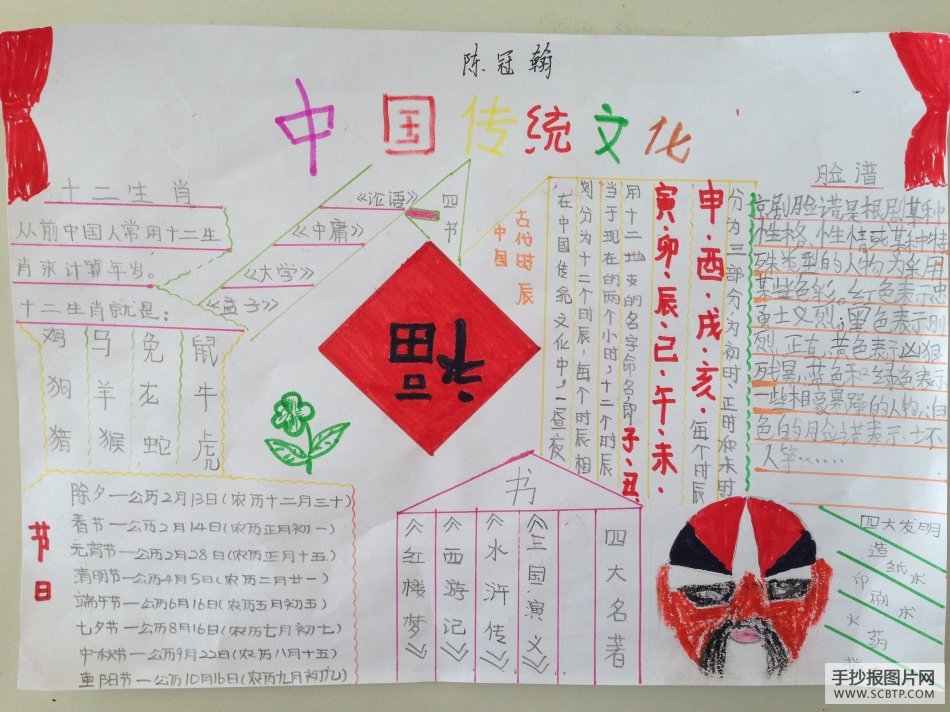 陈冠翰
中国传统文化
十二生肖
从前中国人常用十二生
肖来计算年岁。
十二生肖就是：
鸡 马 兔 鼠
狗 羊 龙 牛
猪 猴 蛇 虎
四书
《论语》
《中庸》
《大学》
《孟子》
福
中国
古代时辰
在中国传统文化中，一昼夜
划分为十二个时辰，每个时辰相
当于现在的两个小时，十二个时辰
用十二地支的名字命名，即子·丑·
寅·卯·辰·己·午·未·
申·酉·戌·亥·每个时辰
分为三部分，为初时、正时和末时。
脸谱
京剧脸谱是根剧某种
性格、性情或某中特
殊类型的人物为采用
某些色彩。红色表示忠
勇士义烈；黑色表示刚
烈、正直，黄色表示凶狠
残暴，蓝色和绿色表示
一些粗豪暴躁的人物，白
色的脸谱表示
人等……
节日
除夕—公历2月13日(农历十二月三十)
春节—公历2月14日(农历正月初一)
元宵节—公历2月28日(农历正月十五)
清明节—公历4月5日(农历二月廿一)
端午节—公历6月16日(农历五月初五)
七夕节—公历8月16日(农历七月初七)
中秋节—公历9月22日(农历八月十五)
重阳节—公历10月16日(农历九月初九)
书
四大名著
《三国演义》
《水浒传》
《西游记》
《红楼梦》
四大发明
造纸术
印刷术
火药
手抄报图片网
WWW.SCBTP.COM